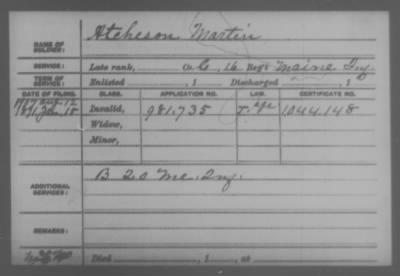 NAME OF SOLDIER: Atcheson Martin
SERVICE: Late rank, Co. G, 16 Reg't Maine Inf.
TERM OF SERVICE: Enlisted , 1 Discharged , 1
DATE OF FILING. CLASS. APPLICATION NO. LAW. CERTIFICATE NO.
1891 Jan 15 Invalid, 981.735 1044.148
Widow,
Minor,
ADDITIONAL SERVICES: B 20 Me. Inf.
REMARKS:
Died , 1 , at